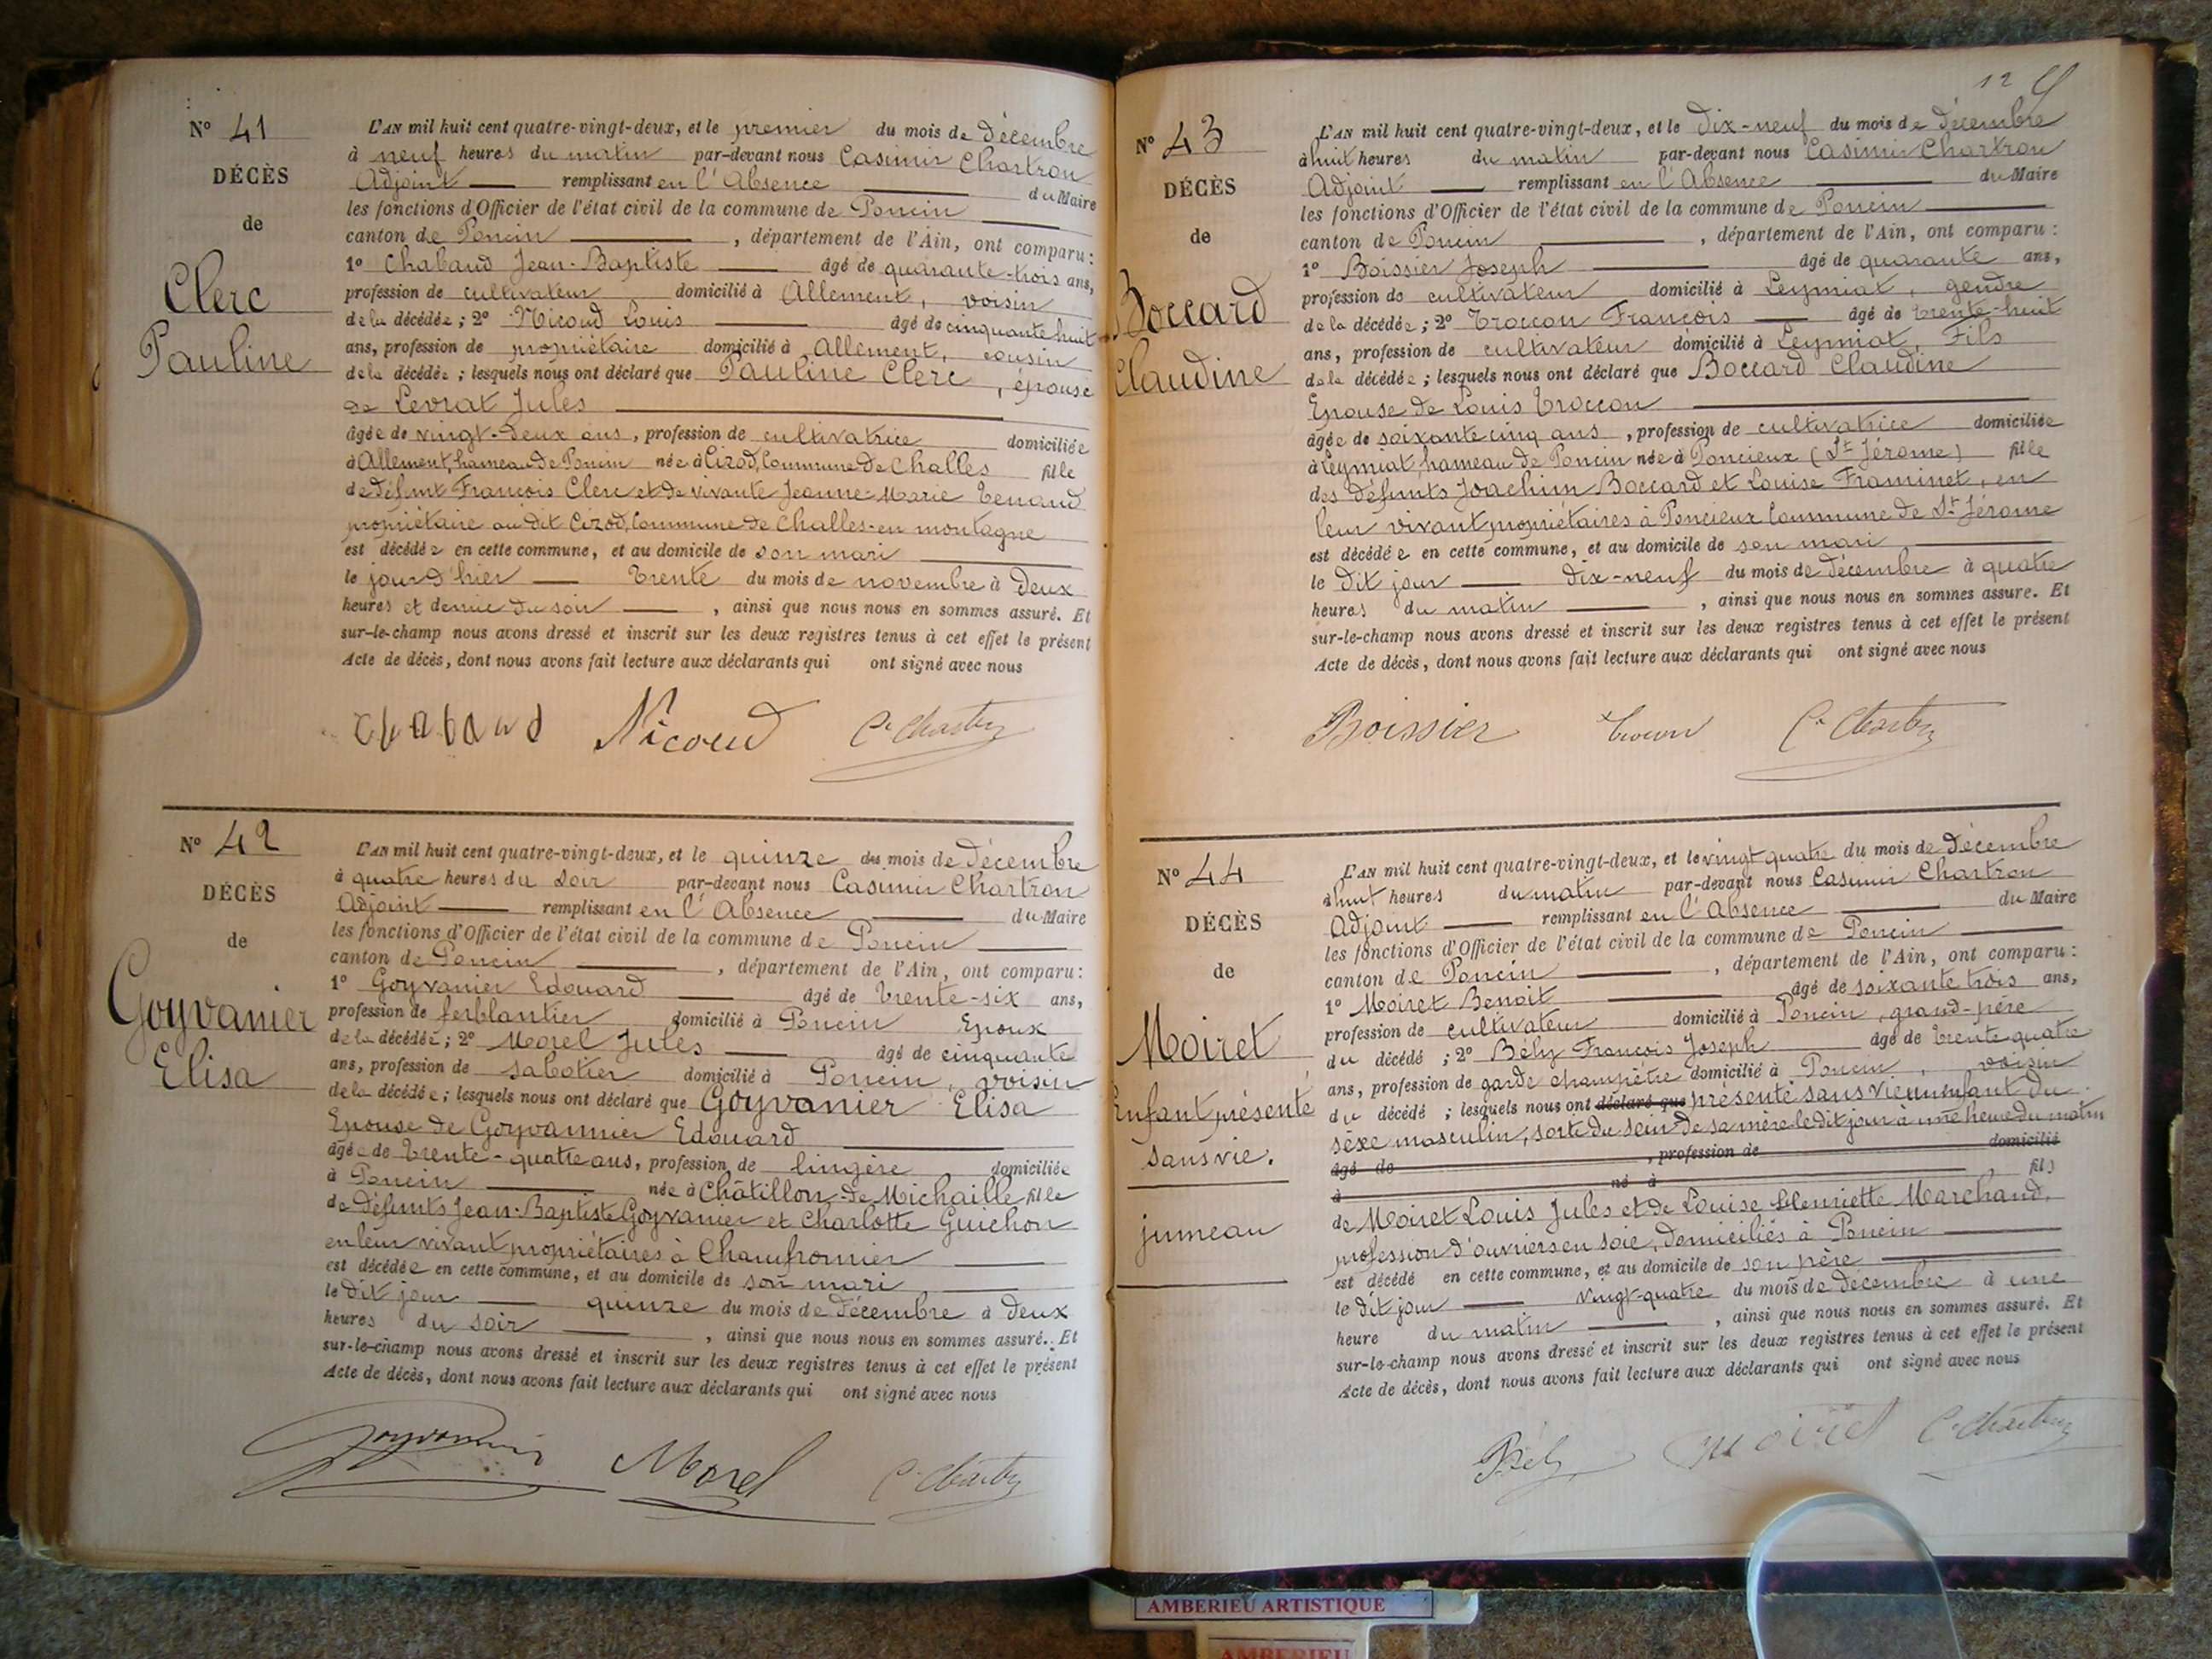 N° 41
DÉCÈS
de
Clerc
Pauline
L'AN mil huit cent quatre-vingt-deux, et le premier du mois de Décembre
à neuf heures du matin par-devant nous Casimir Chartron
Adjoint remplissant en l'Absence du Maire
les fonctions d'Officier de l'état civil de la commune de Poncin
canton de Poncin, département de l'Ain, ont comparu:
1° Chabaud Jean-Baptiste âgé de quarante-trois ans,
profession de cultivateur domicilié à Allement, voisin
de la décédée; 2° Nicoud Louis âgé de cinquante huit
ans, profession de propriétaire domicilié à Allement, cousin
de la décédée; lesquels nous ont déclaré que Pauline Clerc, épouse
de Levrat Jules
âgée de vingt-deux ans, profession de cultivatrice domiciliée
à Allement, hameau de Poncin née à Cizod, Commune de Challes fille
de défunt François Clerc et de vivante Jeanne-Marie Tenand
propriétaire au dit Cizod, Commune de Challes-en montagne
est décédée en cette commune, et au domicile de son mari
le jour d'hier trente du mois de novembre à deux
heures et demie du soir, ainsi que nous nous en sommes assuré. Et
sur-le-champ nous avons dressé et inscrit sur les deux registres tenus à cet effet le présent
Acte de décès, dont nous avons fait lecture aux déclarants qui ont signé avec nous
chabaud Nicoud C. Chartron
N° 42
DÉCÈS
de
Goyvanier
Elisa
L'AN mil huit cent quatre-vingt-deux, et le quinze du mois de Décembre
à quatre heures du soir par-devant nous Casimir Chartron
Adjoint remplissant en l'Absence du Maire
les fonctions d'Officier de l'état civil de la commune de Poncin
canton de Poncin, département de l'Ain, ont comparu:
1° Goyvanier Edouard âgé de trente-six ans,
profession de ferblantier domicilié à Poncin Epoux
de la décédée; 2° Morel Jules âgé de cinquante
ans, profession de sabotier domicilié à Poncin, voisin
de la décédée; lesquels nous ont déclaré que Goyvanier Elisa
Epouse de Goyvannier Edouard
âgée de trente-quatre ans, profession de lingère domiciliée
à Poncin née à Châtillon-de Michaille fille
de défunts Jean-Baptiste Goyvanier et Charlotte Guichon
en leur vivant propriétaires à Chamfromier
est décédée en cette commune, et au domicile de son mari
le dit jour quinze du mois de Décembre à deux
heures du soir, ainsi que nous nous en sommes assuré. Et
sur-le-champ nous avons dressé et inscrit sur les deux registres tenus à cet effet le présent
Acte de décès, dont nous avons fait lecture aux déclarants qui ont signé avec nous
Goyvannier Morel C. Chartron
12
N° 43
DÉCÈS
de
Boccard
Claudine
L'AN mil huit cent quatre-vingt-deux, et le dix-neuf du mois de Décembre
à huit heures du matin par-devant nous Casimir Chartron
Adjoint remplissant en l'Absence du Maire
les fonctions d'Officier de l'état civil de la commune de Poncin
canton de Poncin, département de l'Ain, ont comparu:
1° Boissier Joseph âgé de quarante ans,
profession de cultivateur domicilié à Leymiat, gendre
de la décédée; 2° Troccon François âgé de trente-huit
ans, profession de cultivateur domicilié à Leymiat, Fils
de la décédée; lesquels nous ont déclaré que Boccard Claudine
Epouse de Louis Troccon
âgée de soixante cinq ans, profession de cultivatrice domiciliée
à Leymiat, hameau de Poncin née à Poncieux (St Jérome) fille
des défunts Joachim Boccard et Louise Framinet, en
leur vivant propriétaires à Poncieux Commune de St Jérome
est décédée en cette commune, et au domicile de son mari
le dit jour dix-neuf du mois de Décembre à quatre
heures du matin, ainsi que nous nous en sommes assuré. Et
sur-le-champ nous avons dressé et inscrit sur les deux registres tenus à cet effet le présent
Acte de décès, dont nous avons fait lecture aux déclarants qui ont signé avec nous
Boissier Troccon C. Chartron
N° 44
DÉCÈS
de
Moiret
Enfant présenté
sans vie.
jumeau
L'AN mil huit cent quatre-vingt-deux, et le vingt quatre du mois de Décembre
à huit heures du matin par-devant nous Casimir Chartron
Adjoint remplissant en l'Absence du Maire
les fonctions d'Officier de l'état civil de la commune de Poncin
canton de Poncin, département de l'Ain, ont comparu:
1° Moiret Benoit âgé de soixante trois ans,
profession de cultivateur domicilié à Poncin, grand-père
du décédé; 2° Bély François Joseph âgé de trente-quatre
ans, profession de garde champêtre domicilié à Poncin, voisin
du décédé; lesquels nous ont déclaré que présenté sans vie un enfant du
sexe masculin, sorti du sein de sa mère le dit jour à une heure du matin
âgé de, profession de domicilié
à né à fils
de Moiret Louis Jules et de Louise Henriette Marchand,
profession d'ouvriers en soie, domiciliés à Poncin
est décédé en cette commune, et au domicile de son père
le dit jour vingt-quatre du mois de Décembre à une
heure du matin, ainsi que nous nous en sommes assuré. Et
sur-le-champ nous avons dressé et inscrit sur les deux registres tenus à cet effet le présent
Acte de décès, dont nous avons fait lecture aux déclarants qui ont signé avec nous
Bély moiret C. Chartron
AMBERIEU ARTISTIQUE
AMBERIEU